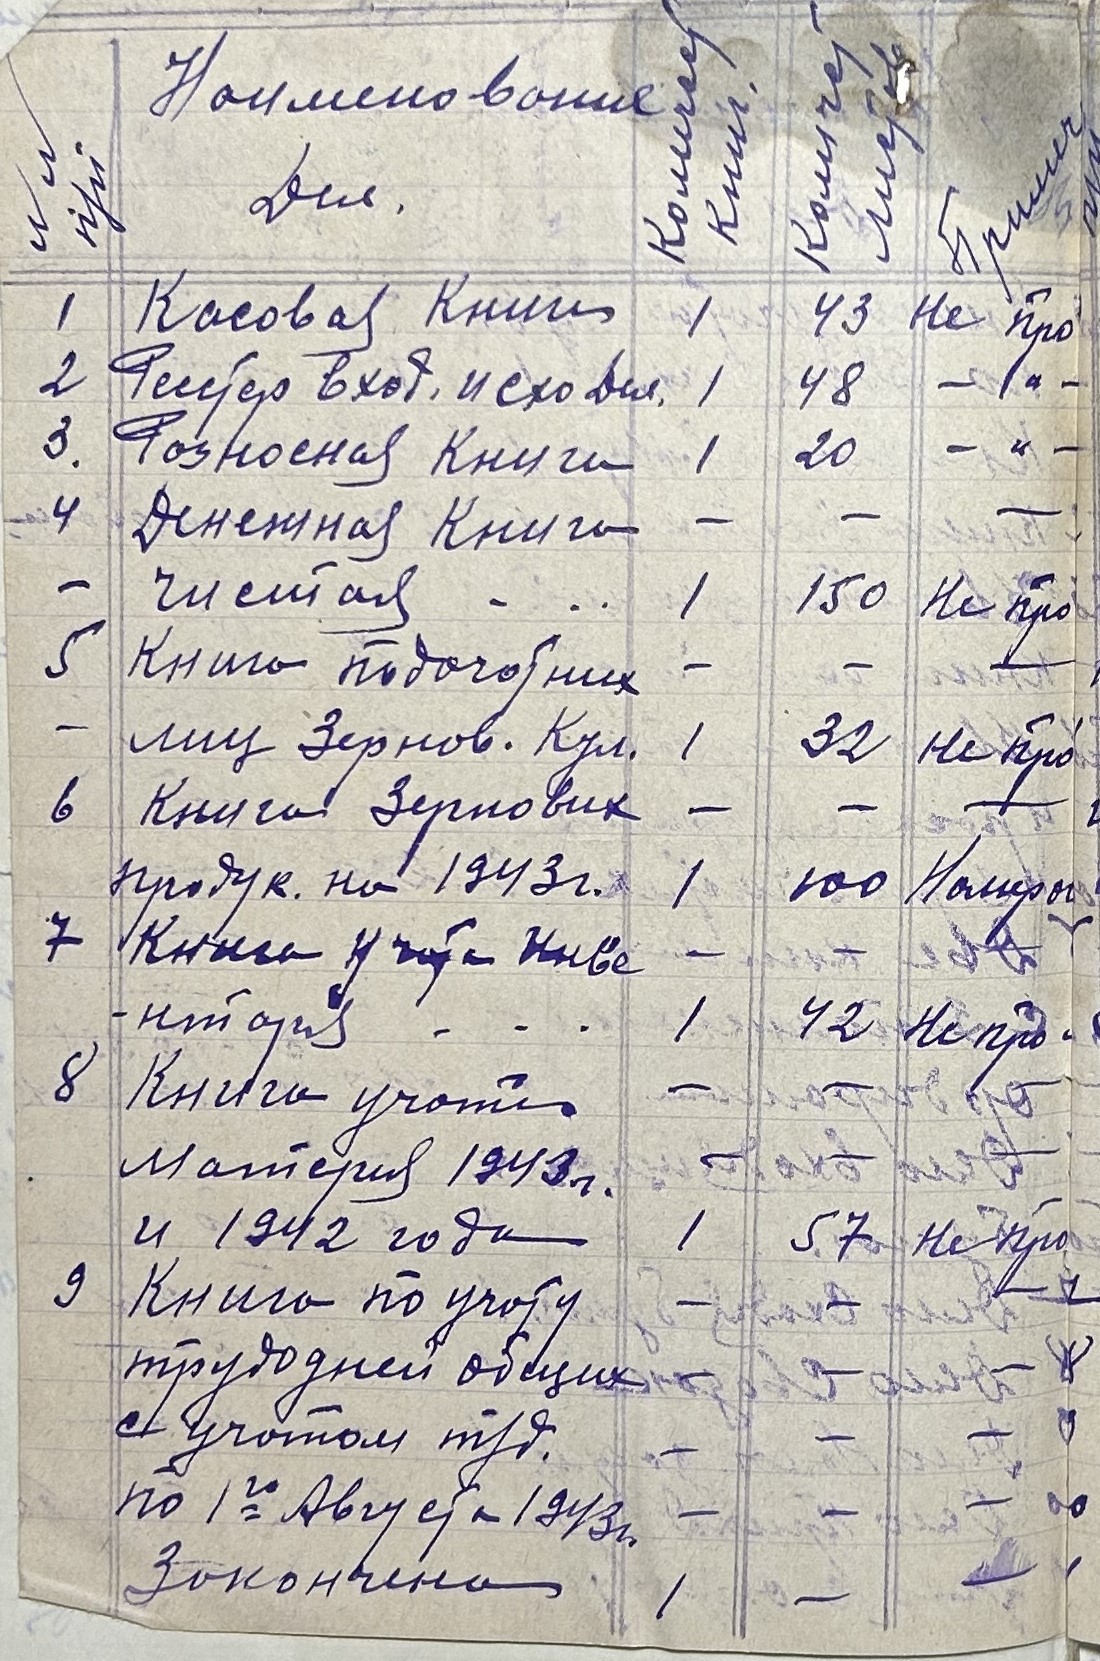 №№ п/п Наименование Дел. Количест Книг. Количест листов Примеч
1 Касовая Книга 1 43 Не про
2 Реестр вход. исход Дел. 1 48 - " -
3. Розносная Книга 1 20 - " -
4 Денежная Книга - - -
- чистая - .. 1 150 Не про
5 Книга подочотних - - -
- лиц Зернов. Кул. 1 32 Не про
6 Книга Зернових - - -
продук. на 1943г. 1 100 Номеров
7 Книга Учота Инве - - -
-нтаря - - . 1 42 Не про
8 Книга учота - - -
Материя 1943г. - - -
и 1942 года 1 57 Не про
9 Книга по учоту - - -
трудодней общих - - -
с учотом труд. - - -
по 1го Августа 1943г. - - -
Закончена 1 - -